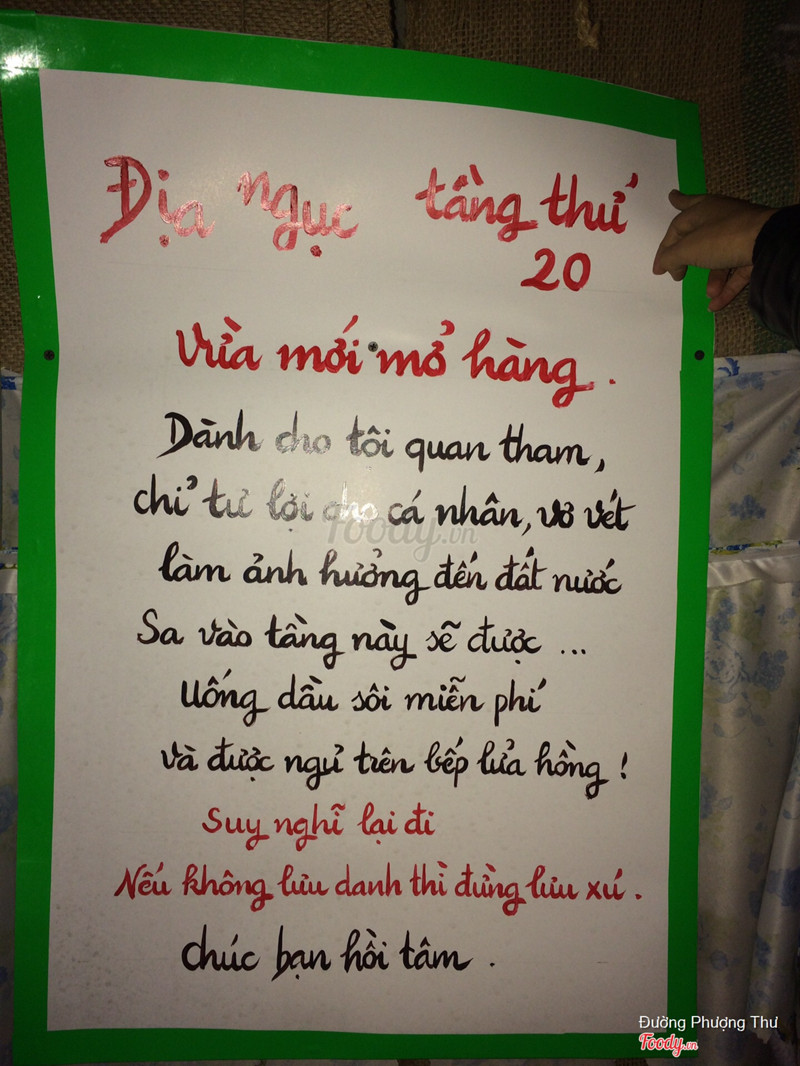 Địa ngục tầng thứ
20
Vừa mới mở hàng.
Dành cho tôi quan tham,
chỉ tư lợi cho cá nhân, vơ vét
làm ảnh hưởng đến đất nước
Sa vào tầng này sẽ được ...
Uống dầu sôi miễn phí
và được ngủ trên bếp lửa hồng !
Suy nghĩ lại đi
Nếu không lưu danh thì đừng lưu xú.
chúc bạn hồi tâm.
Foody.vn
Đường Phượng Thư
Foody.vn